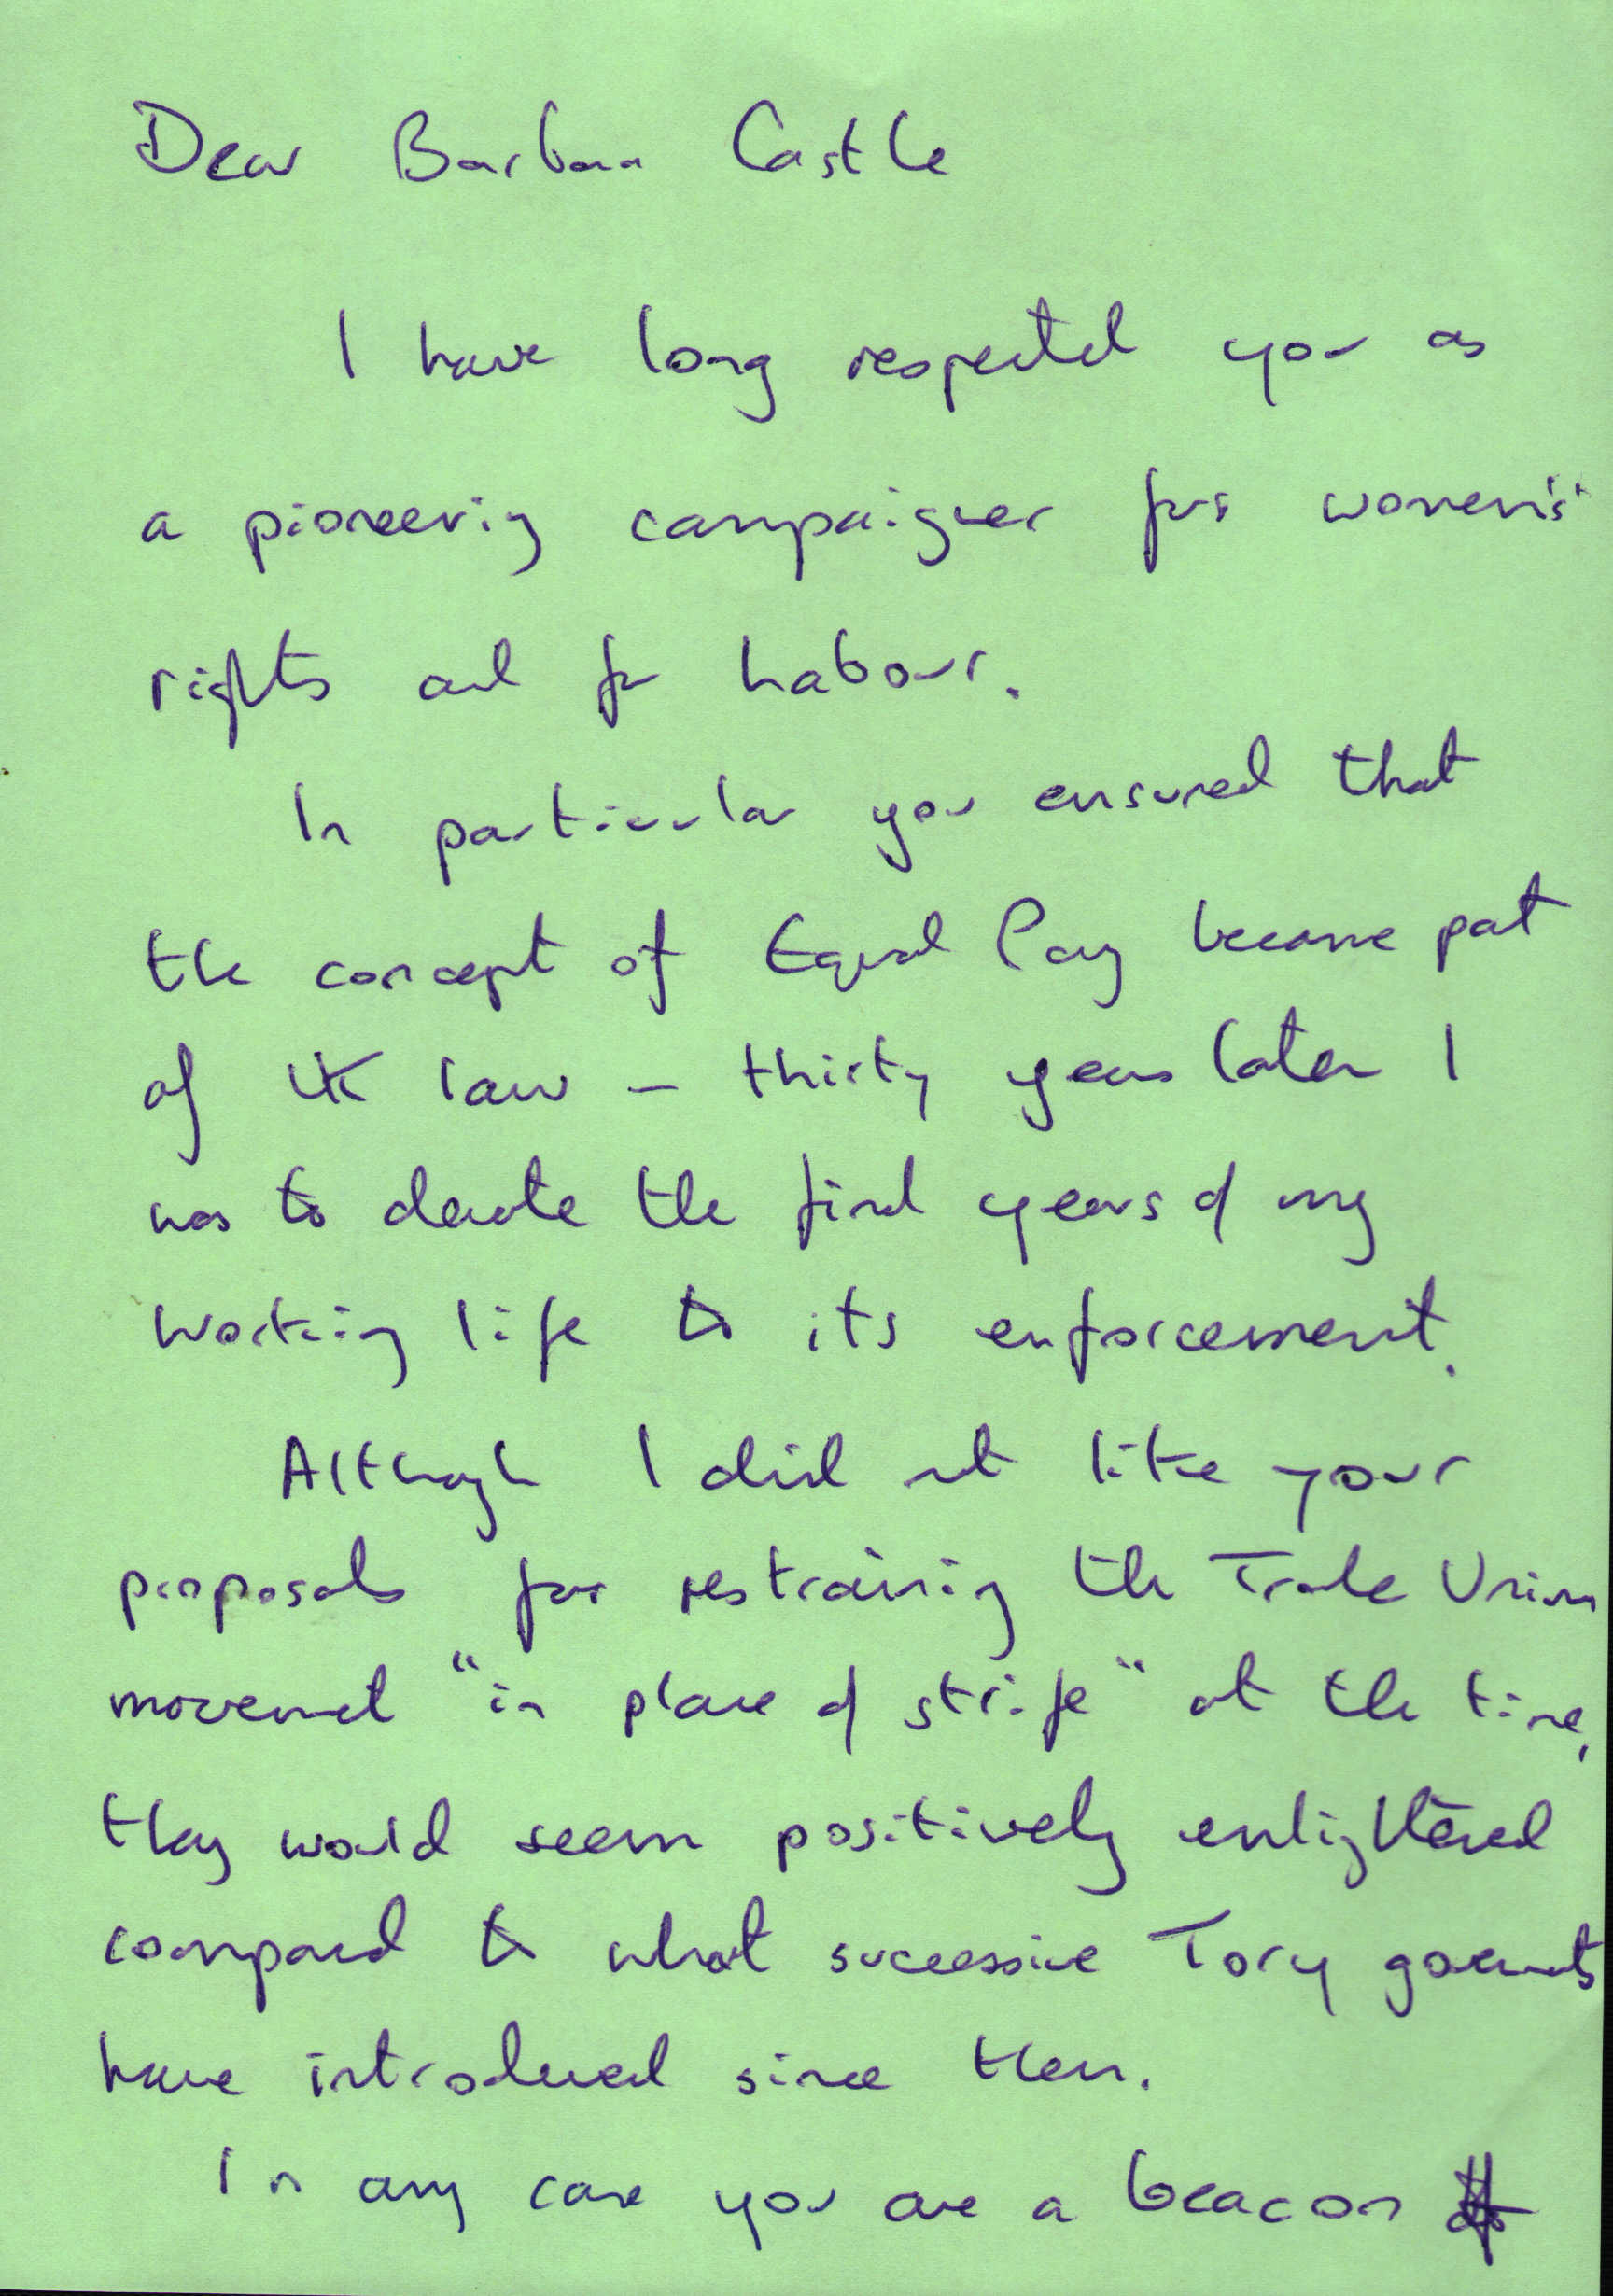 Dear Barbara Castle
I have long respected you as
a pioneering campaigner for women's
rights and for Labour.
In particular you ensured that
the concept of Equal Pay became part
of UK law – thirty years later I
was to devote the final years of my
working life to its enforcement.
Although I did not like your
proposals for restraining the Trade Union
movement "in place of strife" at the time,
they would seem positively enlightened
compared to what successive Tory governments
have introduced since then.
In any case you are a beacon